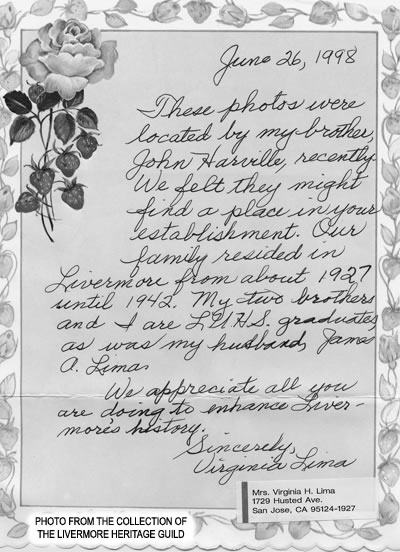 June 26, 1998
These photos were
located by my brother,
John Harville, recently.
We felt they might
find a place in your
establishment. Our
family resided in
Livermore from about 1927
until 1942. My two brothers
and I are L.U.H.S. graduates,
as was my husband, James
A. Lima.
We appreciate all you
are doing to enhance Liver-
more's history.
Sincerely,
Virginia Lima
Mrs. Virginia H. Lima
1729 Husted Ave.
San Jose, CA 95124-1927
PHOTO FROM THE COLLECTION OF
THE LIVERMORE HERITAGE GUILD